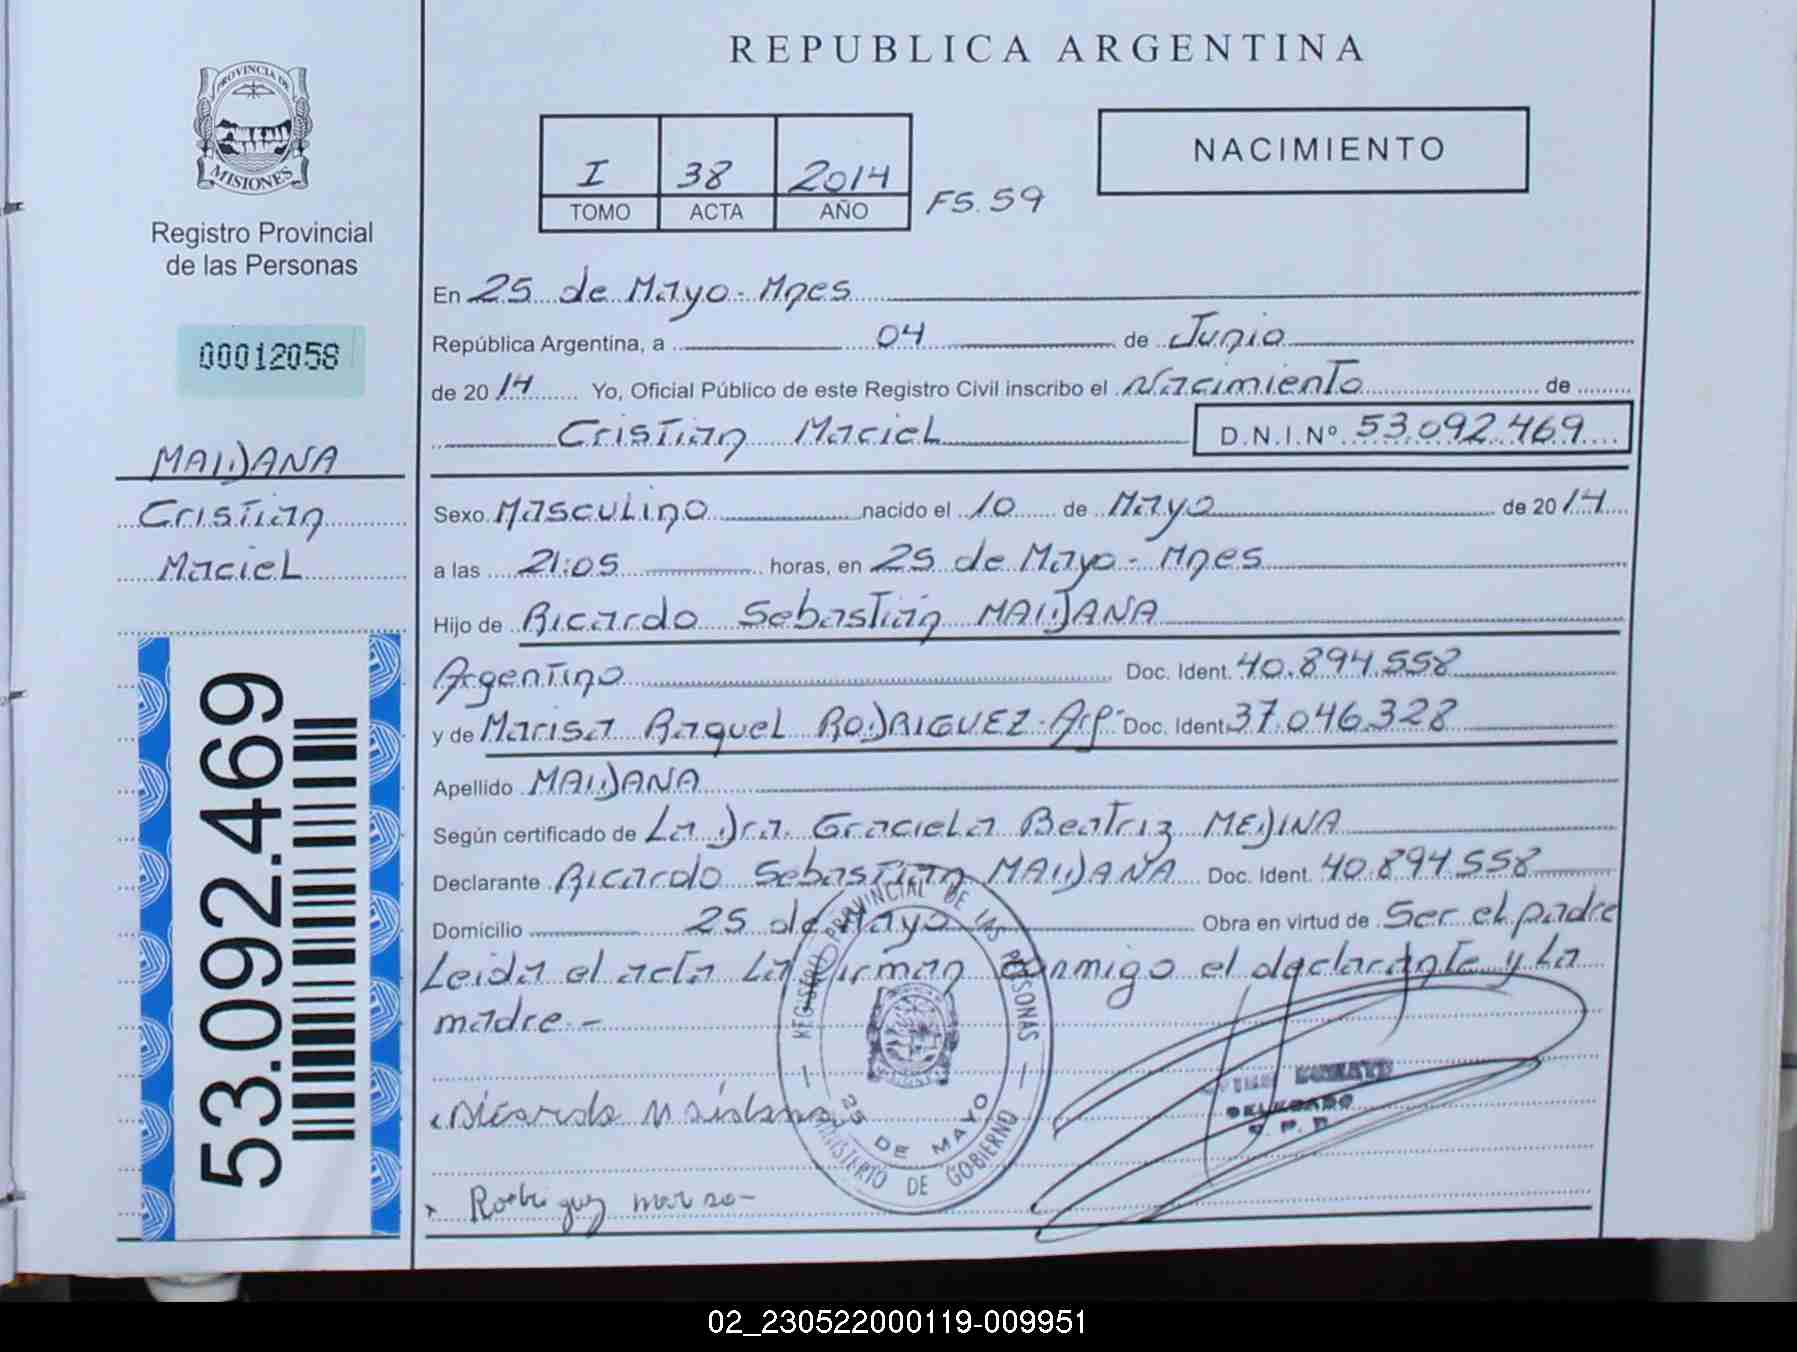 REPUBLICA ARGENTINA
PROVINCIA DE
MISIONES
Registro Provincial
de las Personas
00012058
MAIDANA
Cristian
Maciel
53.092.469
I 38 2014
TOMO ACTA AÑO
FS. 59
NACIMIENTO
En 25 de Mayo - Mnes
República Argentina, a 04 de Junio
de 2014 Yo, Oficial Público de este Registro Civil inscribo el Nacimiento de
Cristian Maciel D.N.I.Nº 53.092.469
Sexo Masculino nacido el 10 de Mayo de 2014
a las 21:05 horas, en 25 de Mayo - Mnes
Hijo de Ricardo Sebastian MAIDANA
Argentino Doc. Ident. 40.894.558
y de Marisa Raquel RODRIGUEZ - Arg. Doc. Ident. 37.046.328
Apellido MAIDANA
Según certificado de La Dra. Graciela Beatriz MEDINA
Declarante Ricardo Sebastian MAIDANA Doc. Ident. 40.894.558
Domicilio 25 de Mayo Obra en virtud de Ser el padre
Leida el acta La Firman Conmigo el declarante y La
madre.-
REGISTRO PROVINCIAL DE LAS PERSONAS
25 DE MAYO
MINISTERIO DE GOBIERNO
Ricardo Maidana
DELEGADO
R. P. P.
Rodriguez marisa-
02_230522000119-009951